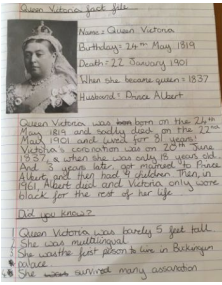 Queen Victoria fact file
Name = Queen Victoria
Birthday = 24th May 1819
Death = 22 January 1901
When she became queen = 1837
Husband = Prince Albert
Queen Victoria was born on the 24th
May 1819 and sadly died on the 22nd
May 1901 and lived for 81 years!
Victoria's coronation was on 20th June
1837, when she was only 18 years old.
And 3 years later got married to Prince
Albert and then had 9 children. Then, in
1961, Albert died and Victoria only wore
black for the rest of her life.
Did you know?
Queen Victoria was barely 5 feet tall
She was multilingual
She was the first person to live in Buckingham
palace
She survived many